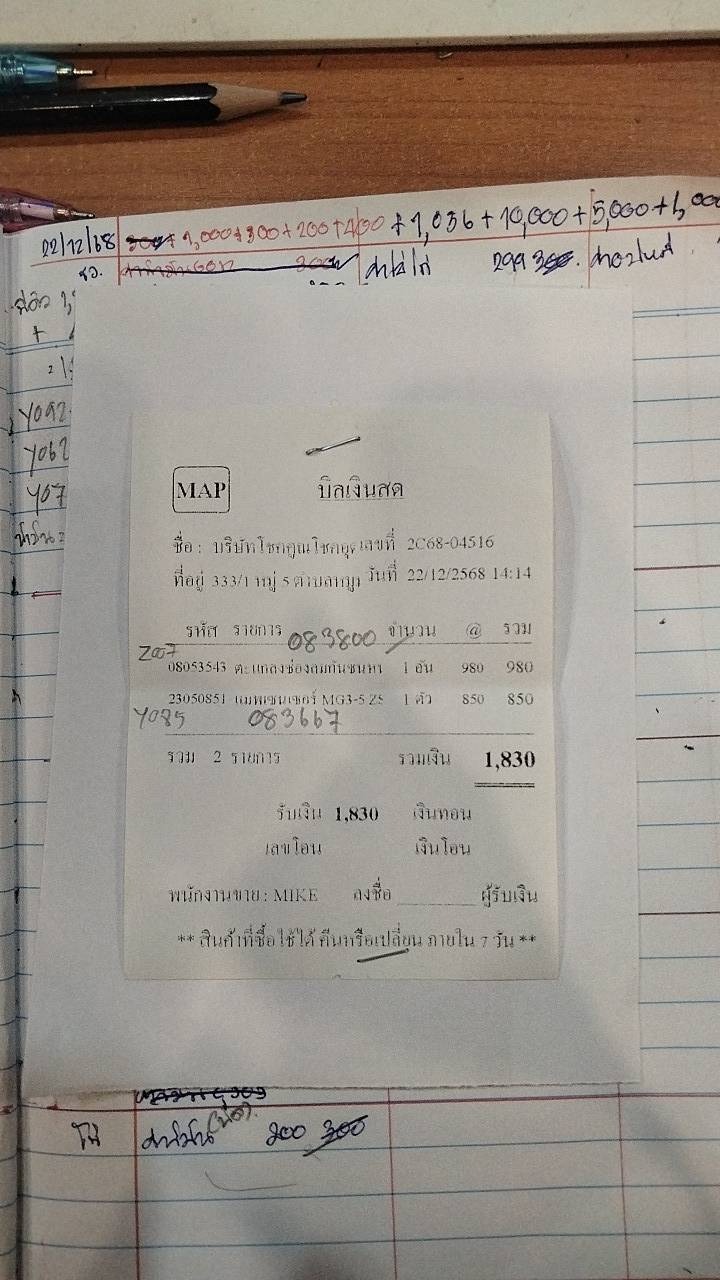 22/12/68 300+ 1,000+300+200+400 + 1,036 + 10,000 + 5,000 + 1,000
300 ค่าใส่ไก่ 299 300.
+
Y092
Y062
Y07
MAP บิลเงินสด
ชื่อ : บริษัทโชคคูณโชค เลขที่ 2C68-04516
ที่อยู่ 333/1 หมู่ 5 ตำบล วันที่ 22/12/2568 14:14
รหัส รายการ 083800 จำนวน @ รวม
2007
08053543 ตะแกลงช่องลมกันชนหน 1 อัน 980 980
23050851 แมพเซนเซอร์ MG3-5 ZS 1 ตัว 850 850
Y085 083667
รวม 2 รายการ รวมเงิน 1,830
รับเงิน 1,830 เงินทอน
เลขโอน เงินโอน
พนักงานขาย : MIKE ลงชื่อ ________ ผู้รับเงิน
** สินค้าที่ซื้อใช้ได้ คืนหรือเปลี่ยน ภายใน 7 วัน **
200 300